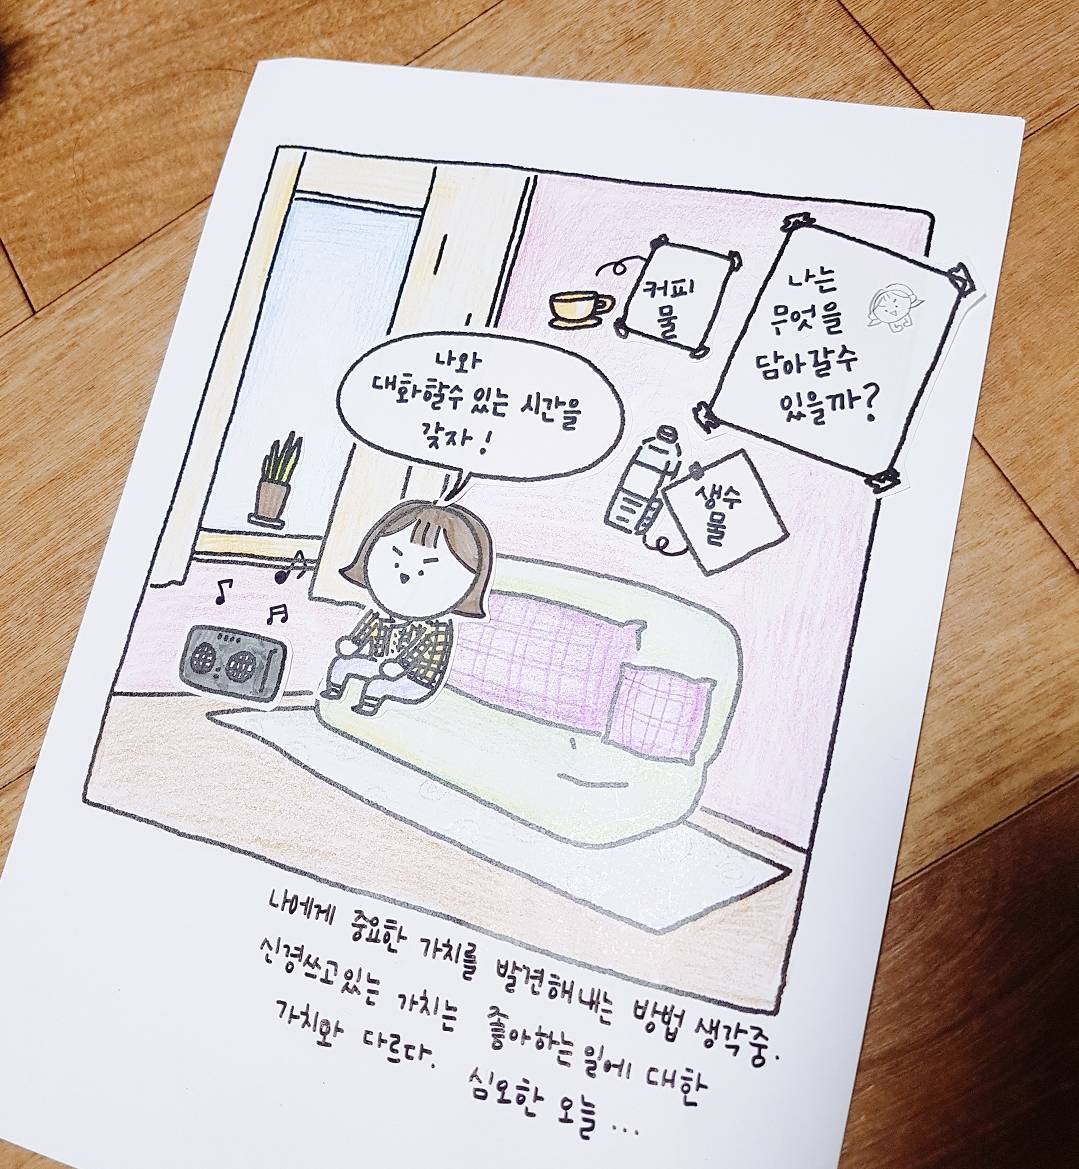 커피
물
나는
무엇을
담아갈수
있을까?
나와
대화할수 있는 시간을
갖자!
생수
물
나에게 중요한 가치를 발견해내는 방법 생각중.
신경쓰고있는 가치는 좋아하는 일에 대한
가치와 다르다. 심오한 오늘...